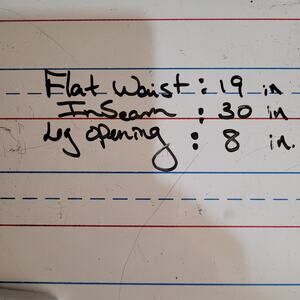 Flat Waist : 19 in
InSeam : 30 in
Leg opening : 8 in.